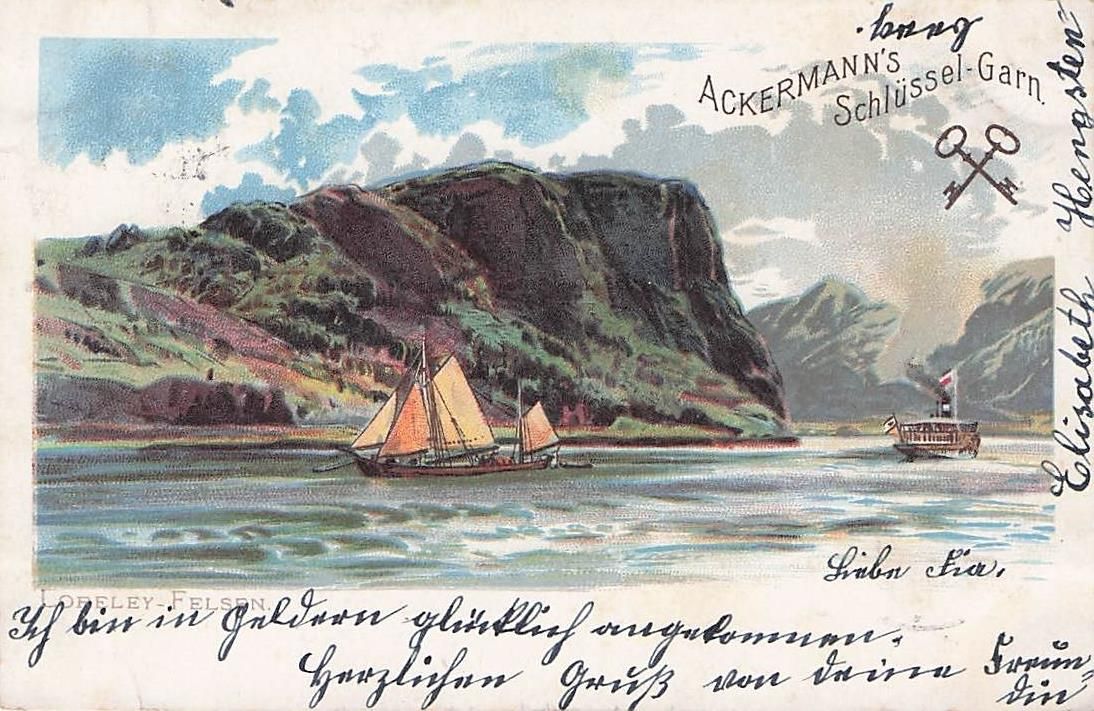 ACKERMANN'S
Schlüssel-Garn.
Liebe Fia.
LORELEY-FELSEN.
Ich bin in Geldern glücklich angekommen.
Herzlichen Gruß von deine Freun-
din
Elisabeth Hengsten-
berg